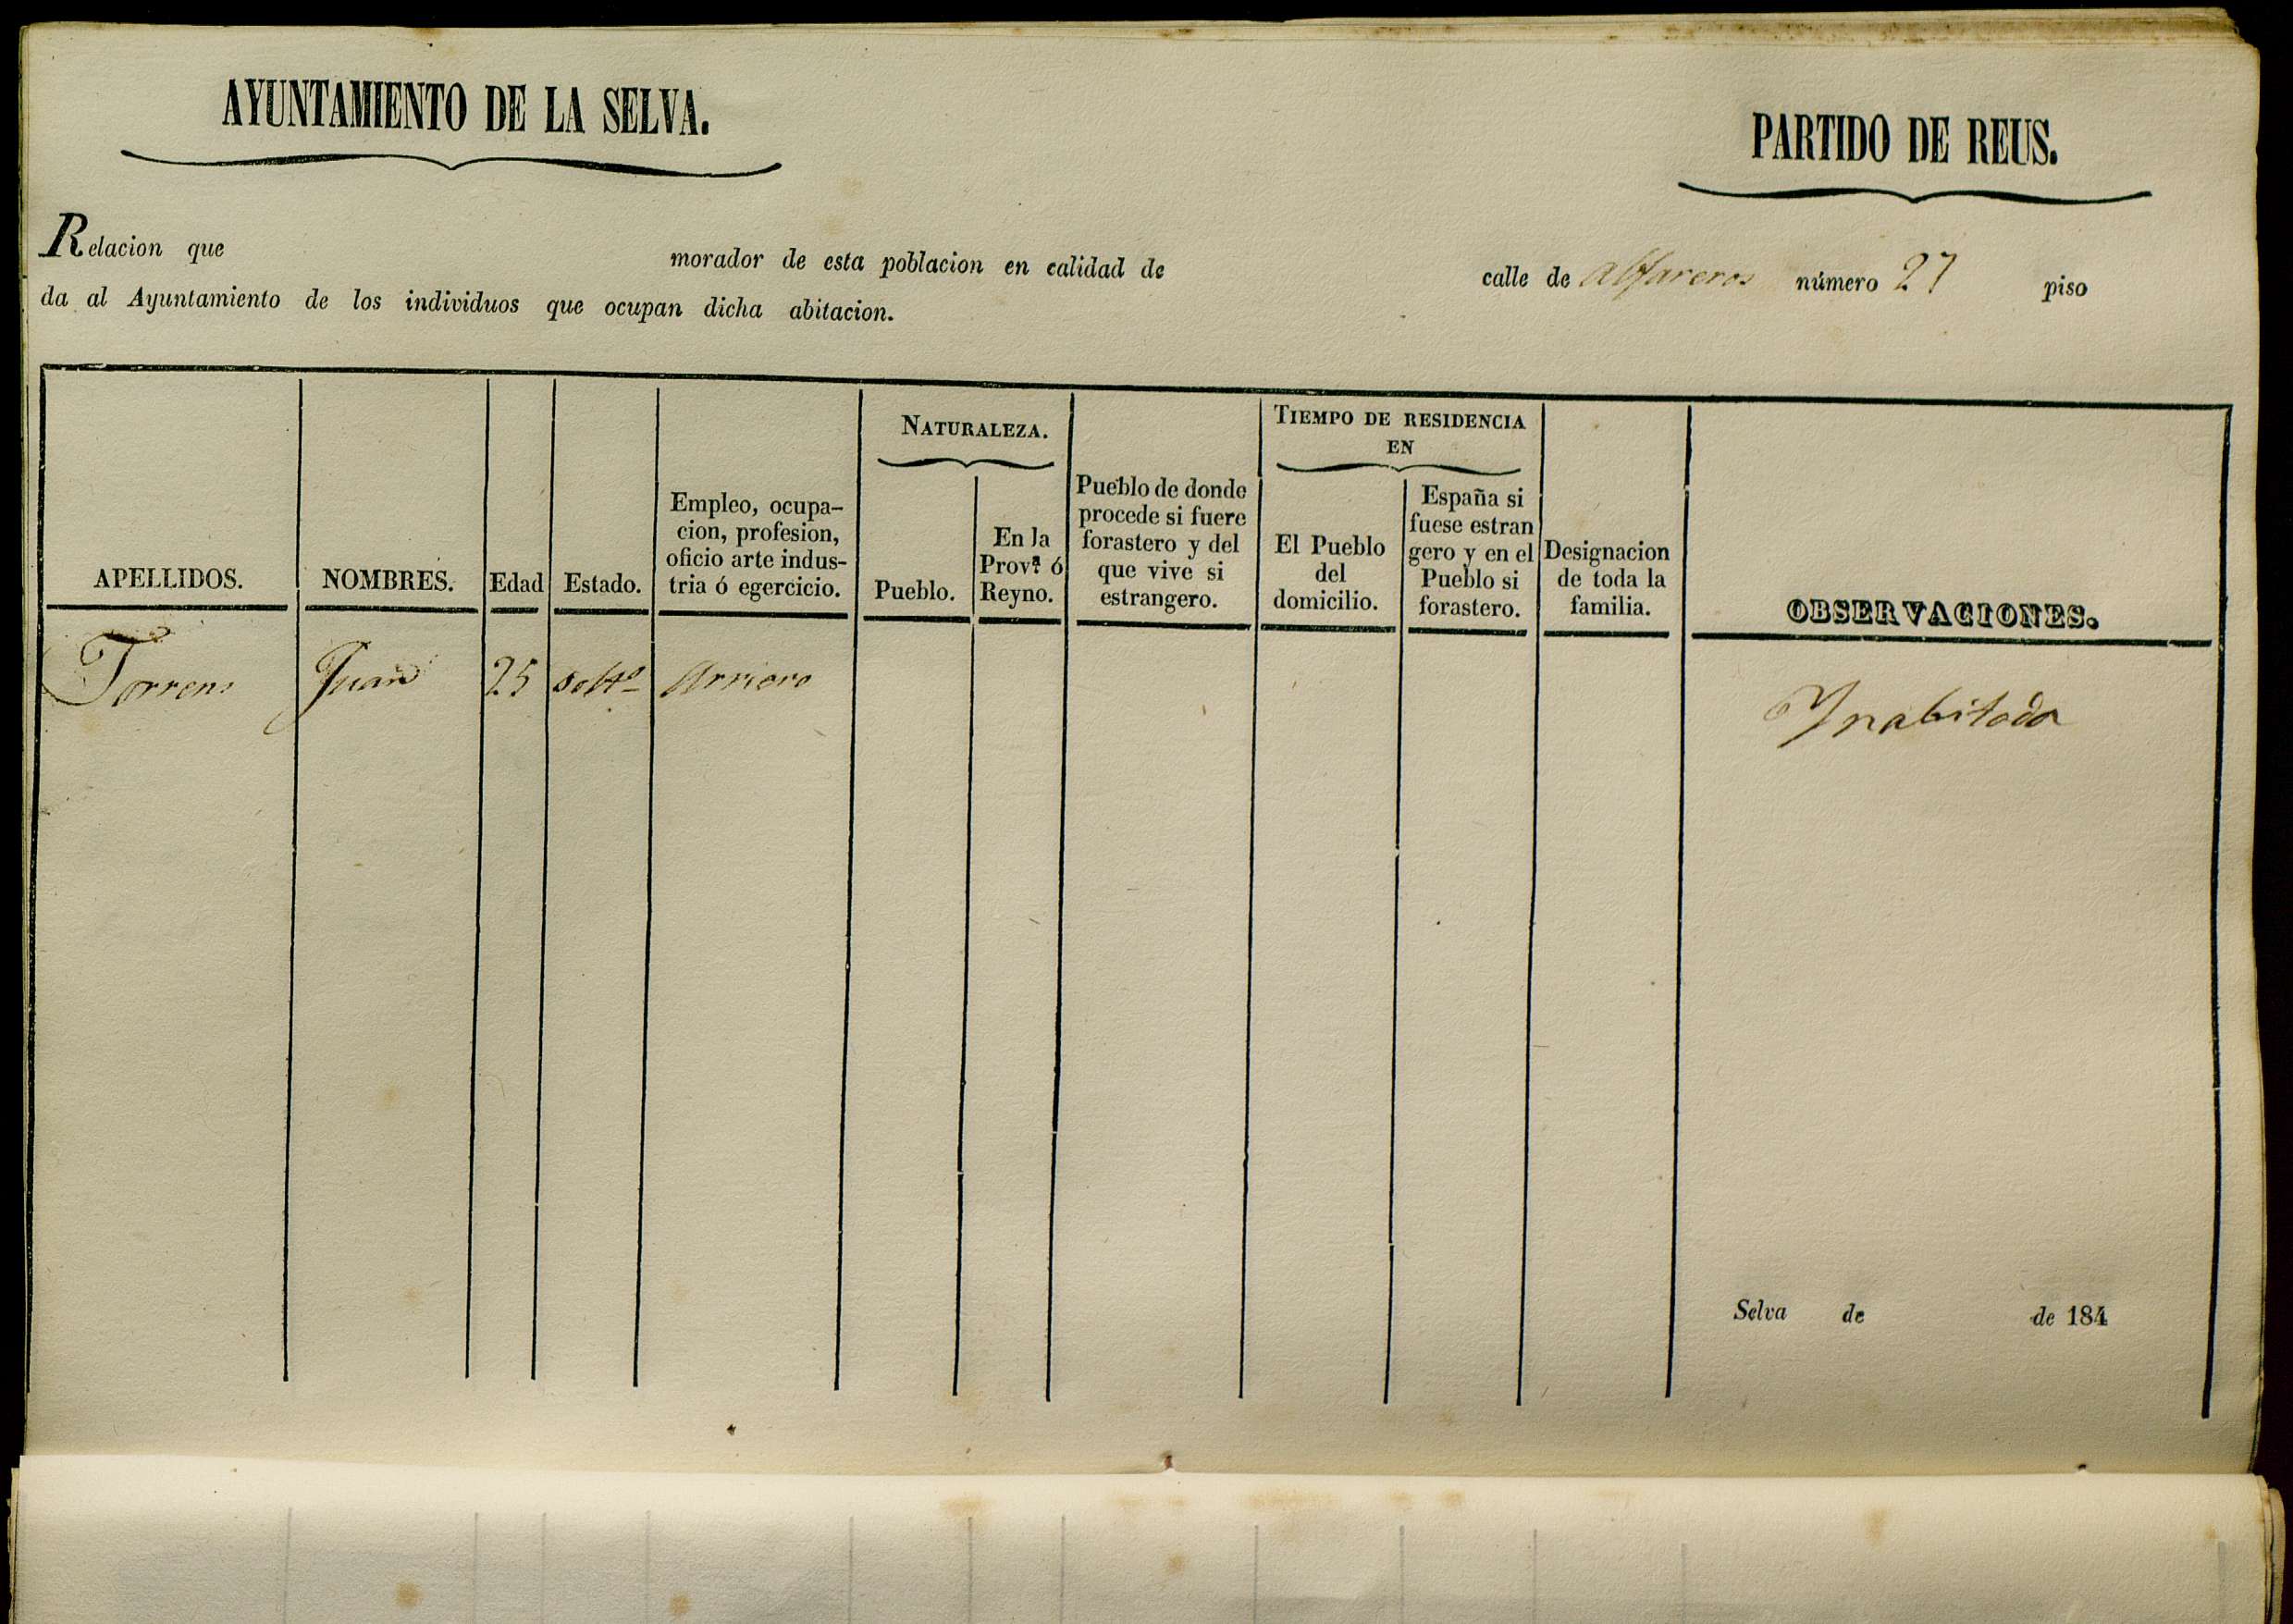 AYUNTAMIENTO DE LA SELVA.
PARTIDO DE REUS.
Relacion que morador de esta poblacion en calidad de calle de Alfareros número 27 piso
da al Ayuntamiento de los individuos que ocupan dicha abitacion.
APELLIDOS.
NOMBRES.
Edad
Estado.
Empleo, ocupa-
cion, profesion,
oficio arte indus-
tria ó egercicio.
NATURALEZA.
Pueblo.
En la
Prov.ª ó
Reyno.
Pueblo de donde
procede si fuere
forastero y del
que vive si
estrangero.
TIEMPO DE RESIDENCIA
EN
El Pueblo
del
domicilio.
España si
fuese estran
gero y en el
Pueblo si
forastero.
Designacion
de toda la
familia.
OBSERVACIONES.
Torrens Juan 25 Solto Arriero
Ynabitada
Selva de de 184